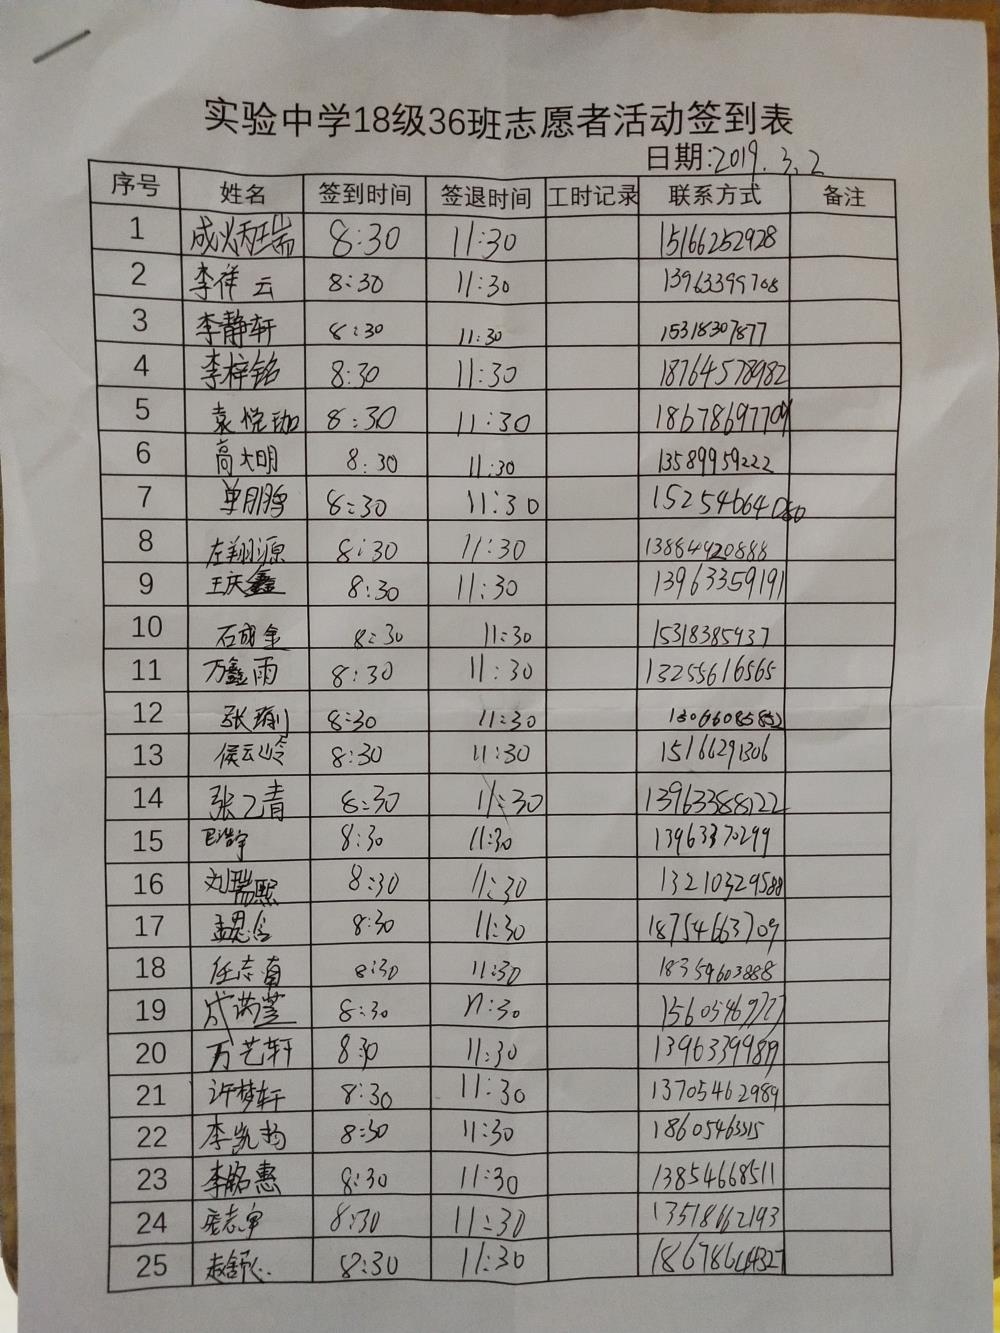 实验中学18级36班志愿者活动签到表
日期:2019.3.2
序号 姓名 签到时间 签退时间 工时记录 联系方式 备注
1 成炳瑞 8:30 11:30 15166252928
2 李祥云 8:30 11:30 13963399768
3 李静轩 8:30 11:30 15318307877
4 李梓铭 8:30 11:30 18764578982
5 袁悦珈 8:30 11:30 18678697709
6 高大明 8:30 11:30 13589959222
7 单鹏 8:30 11:30 15254664080
8 左翔源 8:30 11:30 13884920888
9 王庆鑫 8:30 11:30 13963359191
10 石成金 8:30 11:30 15318385937
11 万鑫雨 8:30 11:30 13255616565
12 张 8:30 11:30
13 侯云岭 8:30 11:30 15166291306
14 张乙清 8:30 11:30 13963388122
15 8:30 11:30 13963370299
16 刘瑞熙 8:30 11:30 13210329588
17 孟思含 8:30 11:30 18754663709
18 任志有 8:30 11:30 18359603888
19 8:30 11:30 15605469727
20 万艺轩 8:30 11:30 13963399989
21 许梦轩 8:30 11:30 13705462989
22 李凯均 8:30 11:30
23 李铭惠 8:30 11:30 13854668511
24 8:30 11:30 13518662193
25 赵舒心 8:30 11:30 18678644327